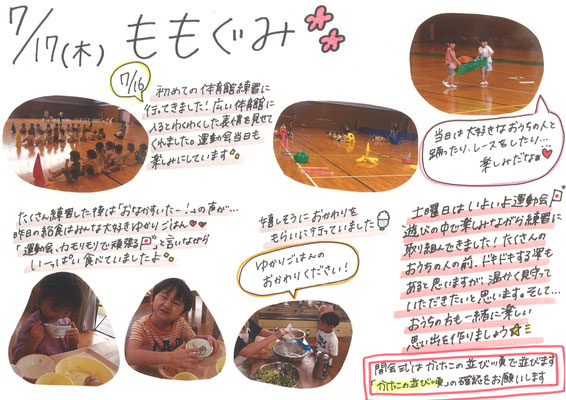 7/17(木) ももぐみ
7/16
初めての体育館練習に
行ってきました!広い体育館に
入るとわくわくした表情を見せて
くれました。運動会当日も
楽しみにしています
当日は大好きなおうちの人と
踊ったり、レースをしたり…
楽しみだなぁ
たくさん練習した後は「おなかすいたー!」の声が…
昨日の給食はみんな大好きゆかりごはん
「運動会、カモリモリで頑張る」と言いながら
い〜っぱい食べていましたよ
嬉しそうにおかわりを
もらいに行っていました
ゆかりごはんの
おかわりください!
土曜日はいよいよ運動会
遊びの中で楽しみながら練習に
取り組んできました!たくさんの
おうちの人の前、ドキドキする姿も
あると思いますが、温かく見守って
いただきたいと思います。そして…
おうちの方も一緒に楽しい
思い出を作りましょう
開会式はかたこの並び順で並びます
「かたこの並び順」の確認をお願いします